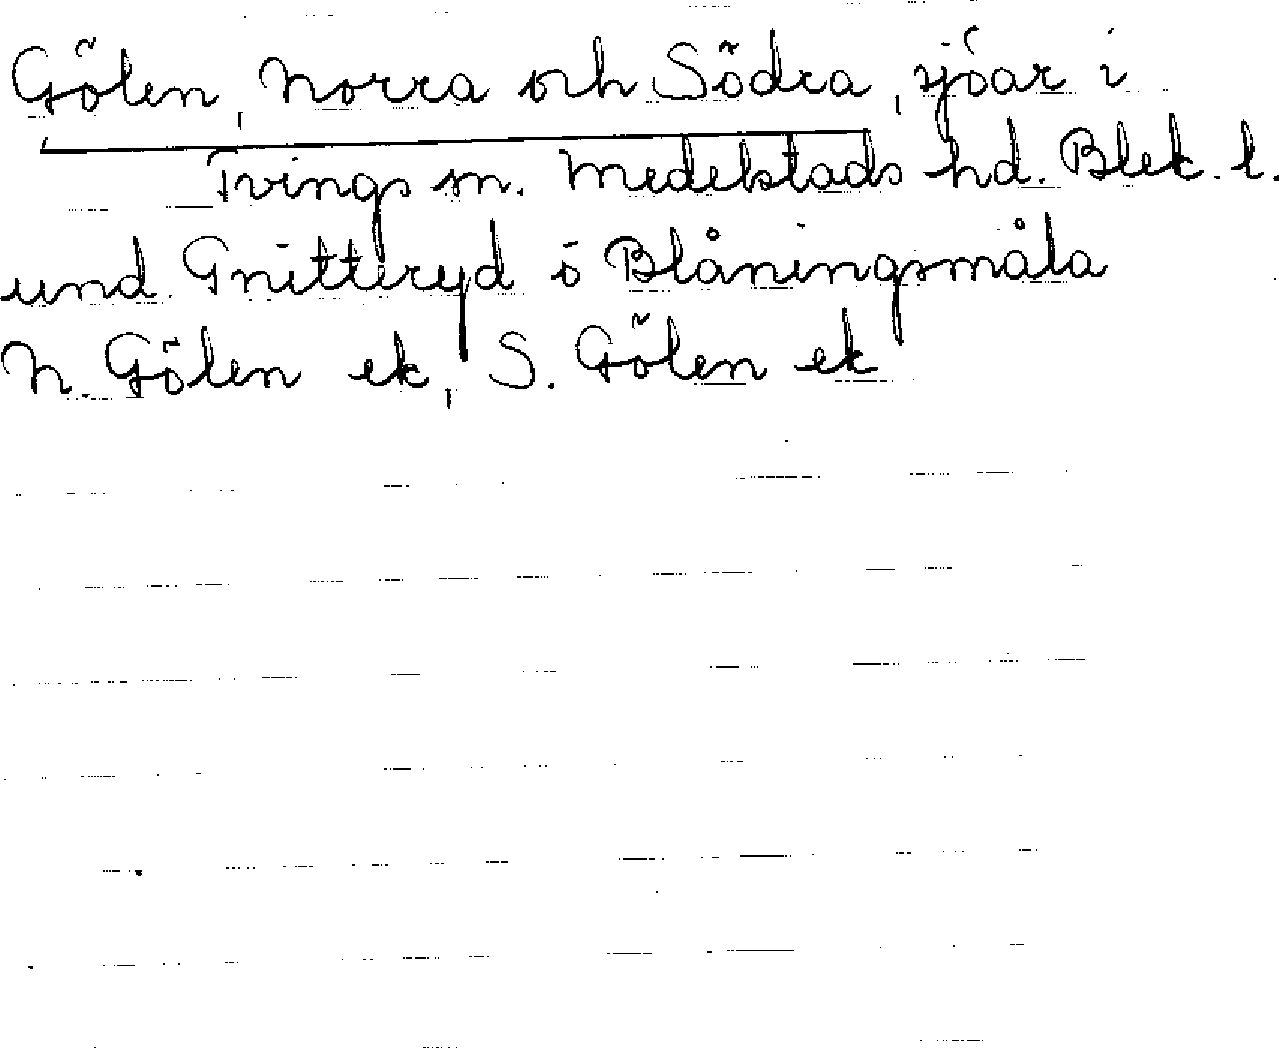 Gölen, Norra och Södra, sjöar i
Tvings sn. Medelstads hd. Blek. l.
und. Gnetteryd o Blåningsmåla
N. Gölen ek, S. Gölen ek